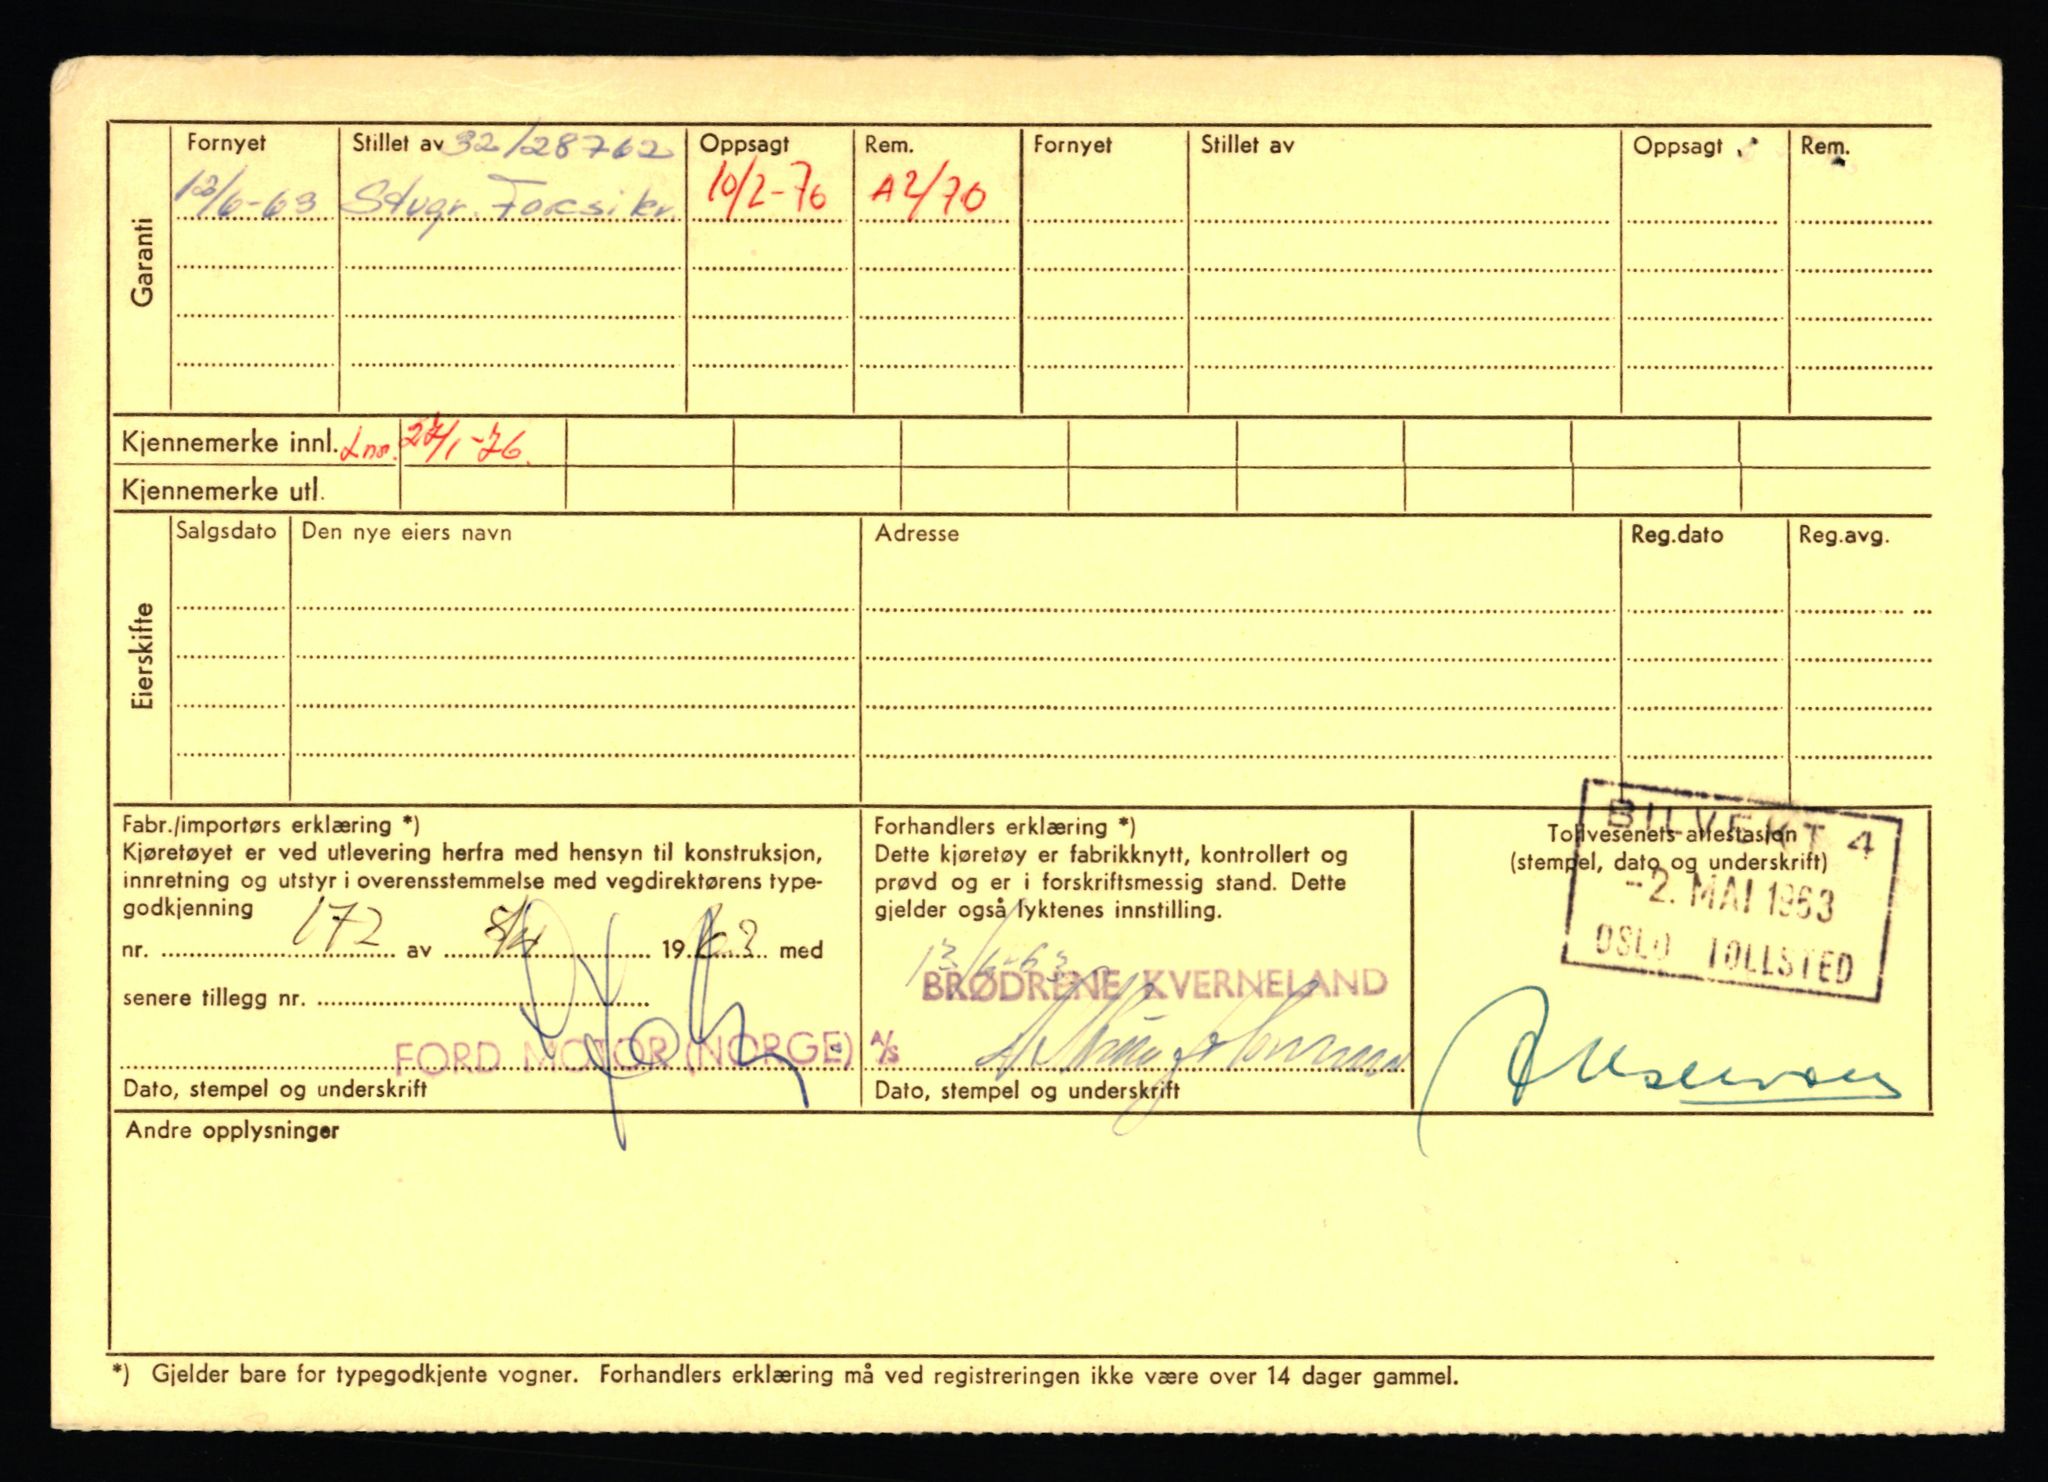 Garanti
Fornyet Stillet av 32/28762 Oppsagt Rem. Fornyet Stillet av Oppsagt Rem.
13/6-63 Stvgr. Forsikr. 10/2-76 A2/70
Kjennemerke innl. Lnr. 27/1-76.
Kjennemerke utl.
Eierskifte
Salgsdato Den nye eiers navn Adresse Reg.dato Reg.avg.
Fabr./importørs erklæring *)
Kjøretøyet er ved utlevering herfra med hensyn til konstruksjon,
innretning og utstyr i overensstemmelse med vegdirektørens type-
godkjenning
nr. 172 av 8/4 1963 med
senere tillegg nr.
FORD MOTOR (NORGE) A/S
Dato, stempel og underskrift
Forhandlers erklæring *)
Dette kjøretøy er fabrikknytt, kontrollert og
prøvd og er i forskriftsmessig stand. Dette
gjelder også lyktenes innstilling.
13/6-63
BRØDRENE KVERNELAND
Dato, stempel og underskrift
Tollvesenets attestasjon
(stempel, dato og underskrift)
BILVEKT 4
-2. MAI 1963
OSLO TOLLSTED
Andre opplysninger
*) Gjelder bare for typegodkjente vogner. Forhandlers erklæring må ved registreringen ikke være over 14 dager gammel.